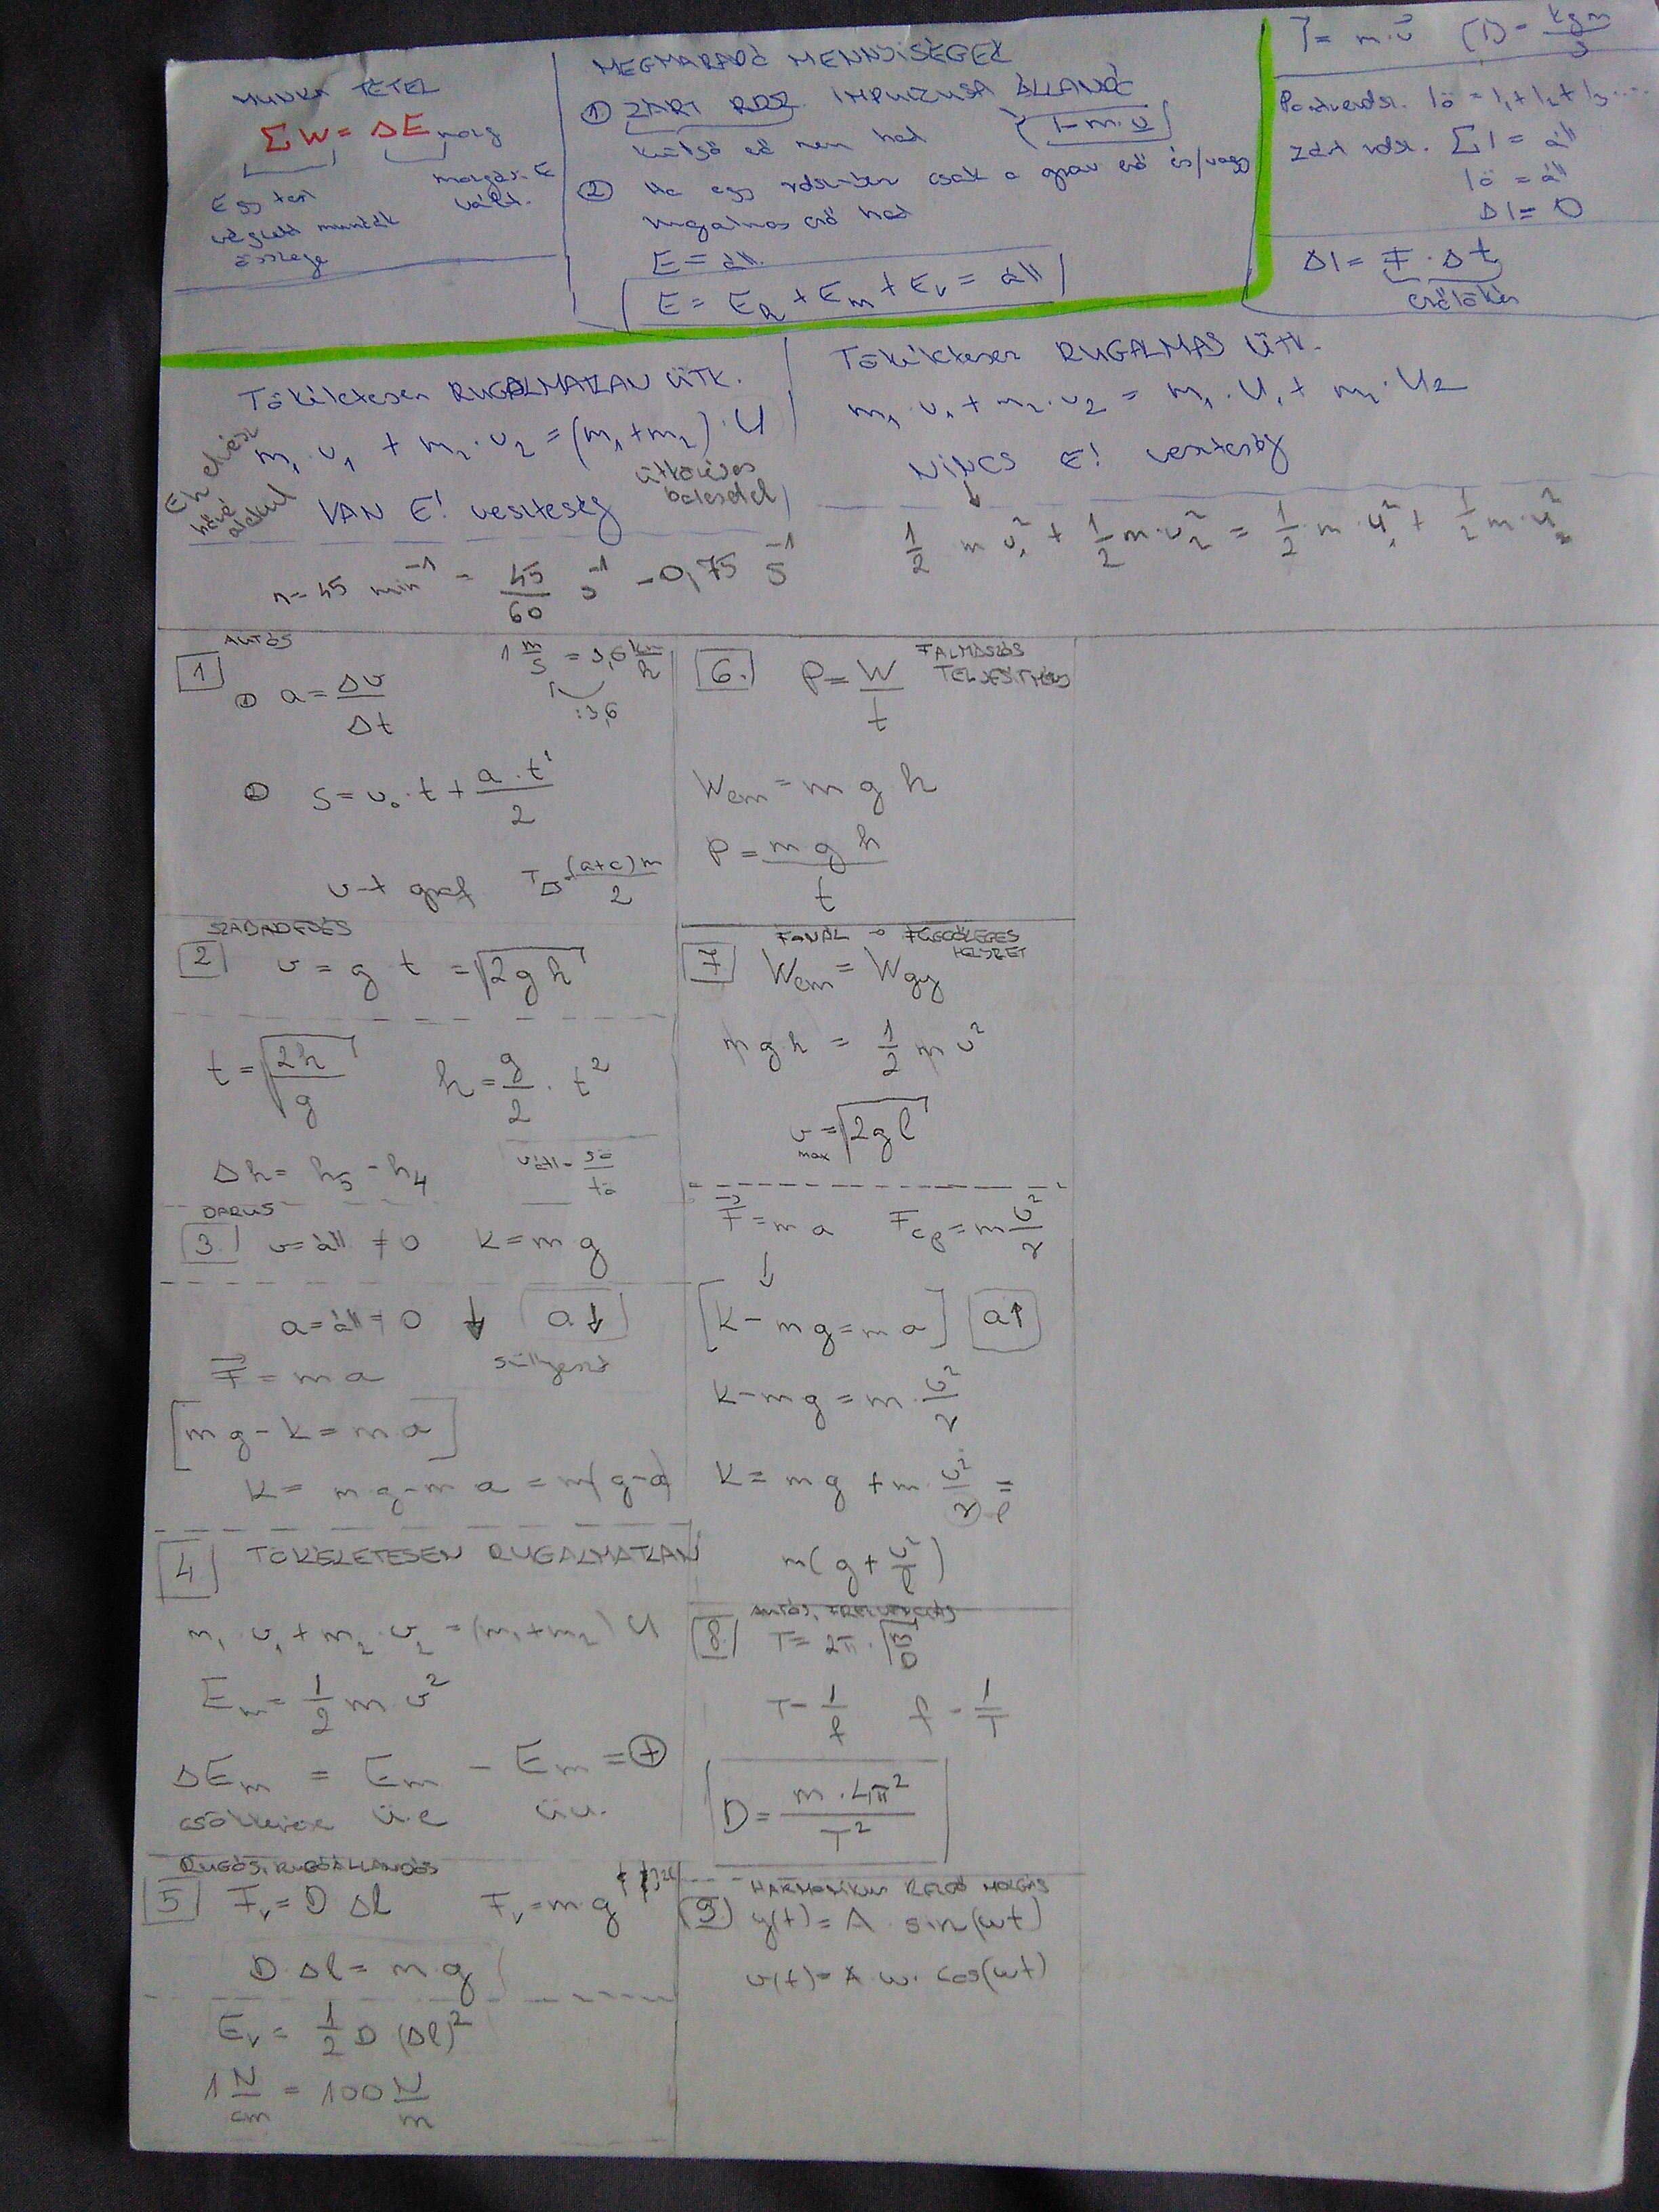 MUNKA TÉTEL
ΣW = ΔE mozg
Egy test
végzett munkák
összege
mozgás. E
vált.
MEGMARADÓ MENNYISÉGEK
① ZÁRT RDSZ. IMPULZUSA ÁLLANDÓ
külső erő nem hat
I=m·v
② Ha egy rdszerben csak a grav erő és/vagy
rugalmas erő hat
E = áll.
E = E_h + E_m + E_v = áll
I = m·v (I) = kgm/s
Pontrendsz. Iö = I₁+I₂+I₃....
Zárt rdsz. ΣI = áll
Iö = áll
ΔI = 0
ΔI = F · Δt
erőlökés
Tökéletesen RUGALMATLAN ÜTK.
m₁·v₁ + m₂·v₂ = (m₁+m₂)·U
VAN E! veszteség
ütközéses
balesetek
hővé
alakul
Tökéletesen RUGALMAS ÜTK.
m₁·v₁ + m₂·v₂ = m₁·U₁ + m₂·U₂
NINCS E! veszteség
↓
1/2 m v₁² + 1/2 m·v₂² = 1/2·m·u₁² + 1/2 m·u₂²
n = 45 min⁻¹ = 45/60 s⁻¹ = 0,75 s⁻¹
AUTÓS
1 ① a = Δv/Δt
1 m/s = 3,6 km/h
:3,6
② s = v₀·t + a·t²/2
v-t graf T = (a+c)m/2
SZABADESÉS
2 v = g t = √2gh
t = √2h/g h = g/2 · t²
Δh = h₅ - h₄ v átl = sö/tö
DARUS
3. v = áll ≠ 0 K = m g
a = áll ≠ 0 ↓ a↓
süllyeszt
F = m a
[m g - K = m a]
K = m g - m a = m(g-a)
4 TÖKÉLETESEN RUGALMATLAN
m₁ v₁ + m₂ v₂ = (m₁+m₂) U
E_m = 1/2 m v²
ΔE_m = E_m - E_m = ⊕
csökkenése ü.e ü.u.
RUGÓS, RUGÓÁLLANDÓS
5 F_v = D Δl F_v = m g
D·Δl = m g
E_v = 1/2 D (Δl)²
1 N/cm = 100 N/m
6. P = W/t
FALMÁSZÓS
TELJESÍTMÉNY
W_em = m g h
P = m g h/t
FONÁL → FÜGGŐLEGES
HELYZET
7 W_em = W_gy
m g h = 1/2 m v²
v max = √2gl
F = m a F_cp = m v²/r
↓
[K - m g = m a] a↑
K - m g = m · v²/r
K = m g + m · v²/r =
l
m(g + v²/l)
AUTÓS, FREKVENCIÁS
8. T = 2π · √m/D
T = 1/f f = 1/T
D = m·4π²/T²
HARMONIKUS REZGŐ MOZGÁS
9. y(t) = A · sin(ωt)
v(t) = A·ω·cos(ωt)